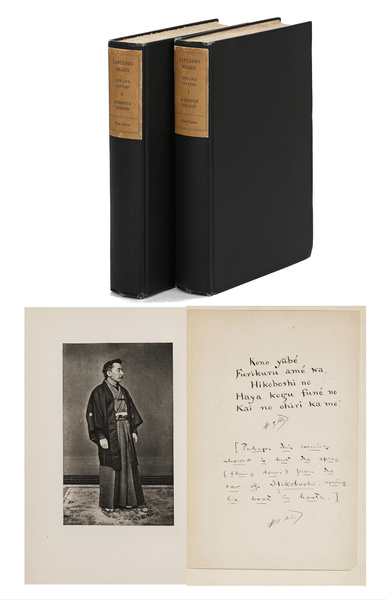 LAFCADIO
HEARN
LIFE AND
LETTERS
II
ELIZABETH
BISLAND
LAFCADIO
HEARN
LIFE AND
LETTERS
I
ELIZABETH
BISLAND
Kono yūbé
Furikuru amé wa,
Hikoboshi no
Haya kogu funé no
Kai no chiri ka mo.
[Perhaps this evening
shower is but the spray
(flung down) from the
oar of Hikoboshi, rowing
his boat in haste.]